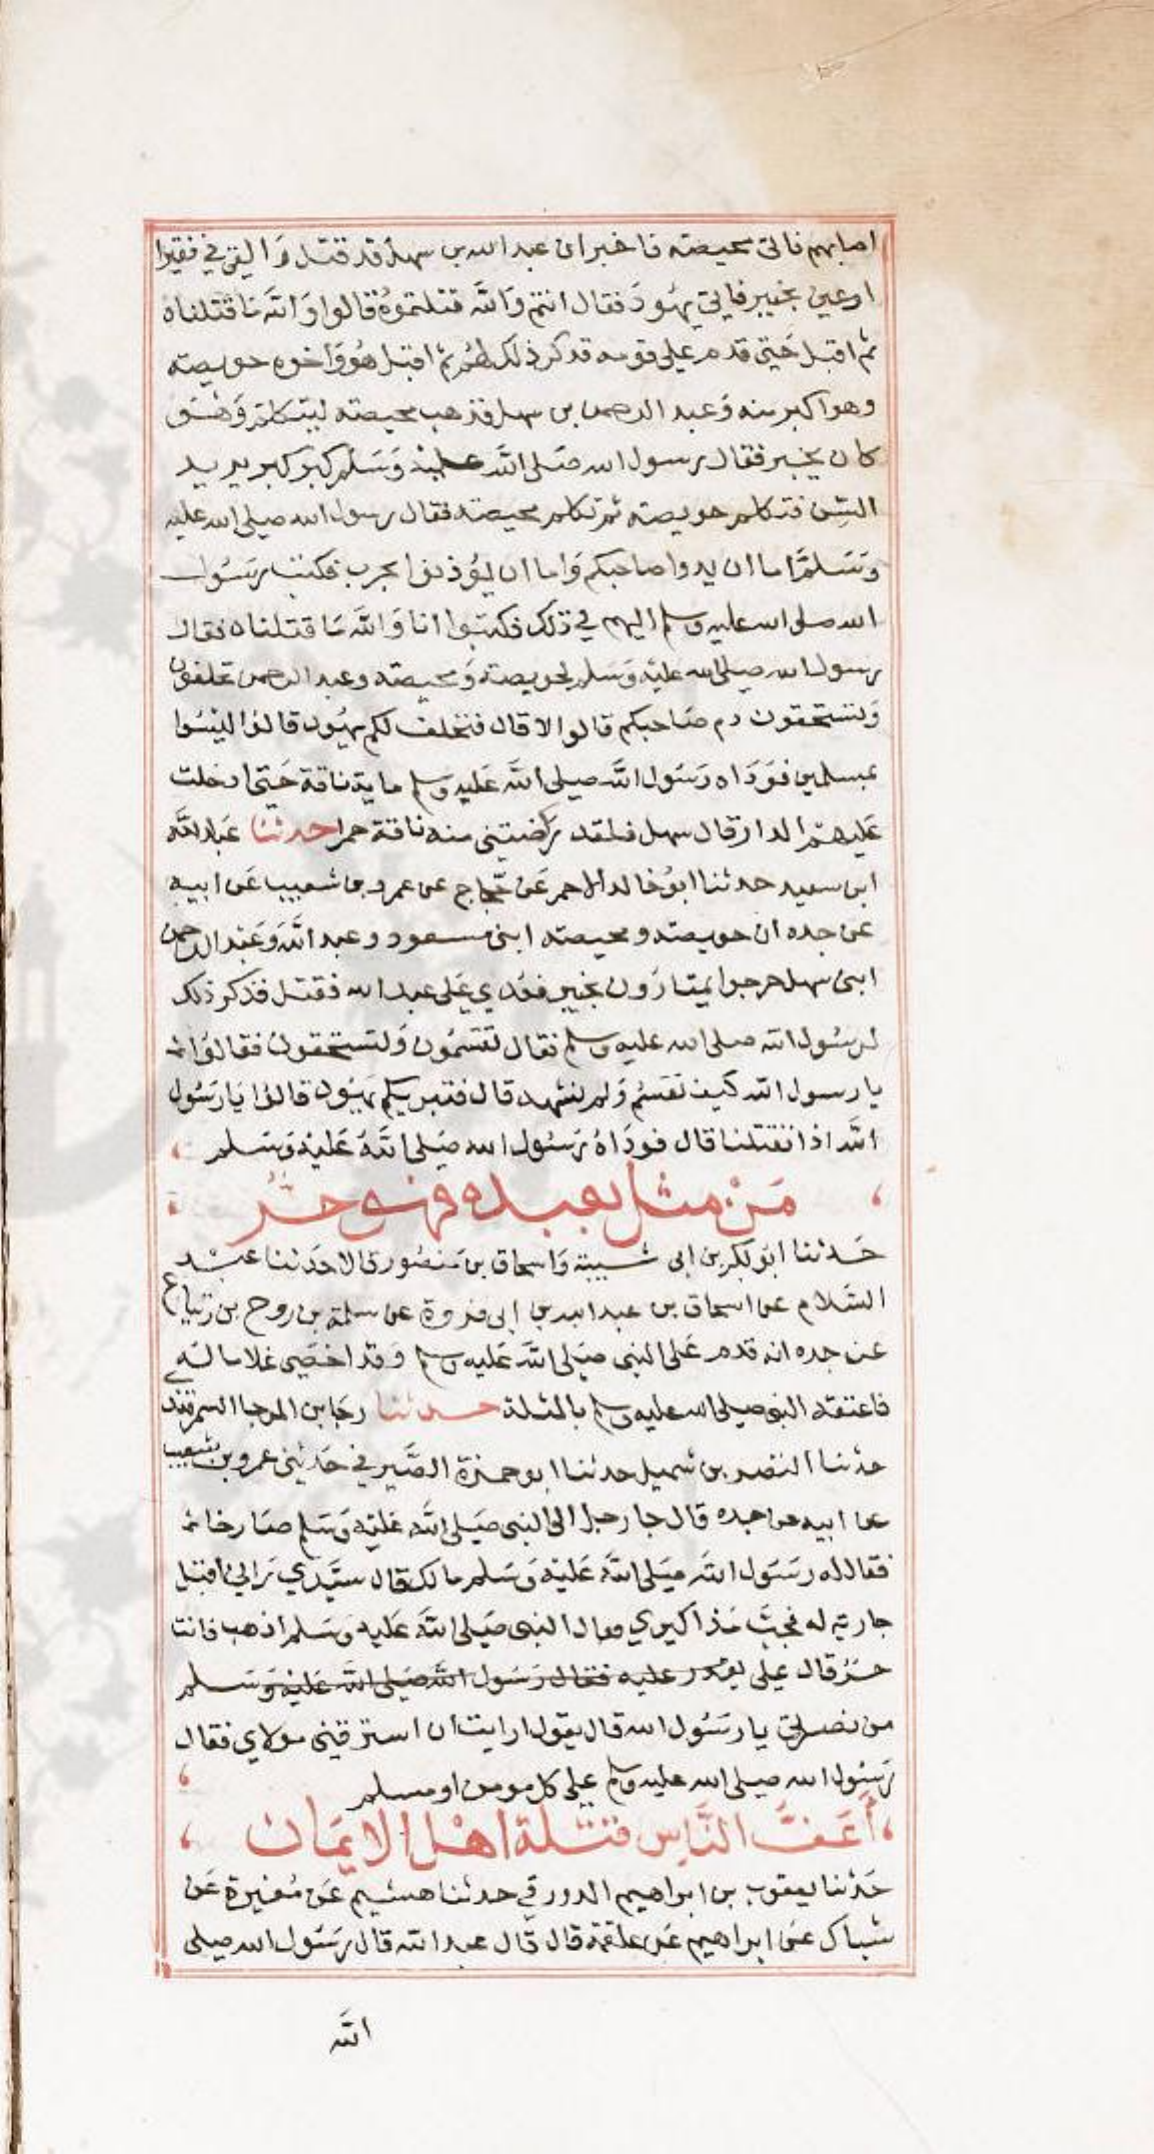 اصابهم فاتى محيصة فاخبر ان عبد الله بن سهل قد قتل وَالقي في فقير
او عين بخيبر فاتي يهُودَ فقال انتم وَالله قتلتموُه قالوا وَالله مَا قتلناه
ثم اقبل حَتى قدم على قومه فذكر ذلك لهُم ثم اقبل هُوَ وَاخوه حويصة
وهو اكبر منه وَعبد الرحمن بن سهل فذهب محيصة ليتكلم وَهُوَ
كان بخيبر فقال رسول الله صَلى الله عليْه وَسَلم كبر كبر يريد
السِن فتكلم حويصة ثم تكلم محيصة فقال رسول الله صلى الله عليه
وَسَلم اما ان يدوا صاحبكم وَاما ان يُؤذنوا بحرب فكتب رسَوُل
الله صلى الله عليه وسلم اليهم في ذلك فكتبوا انا وَالله مَا قتلناه فقال
رسول الله صلى الله عليْه وَسَلم لحويصة وَمحيصة وعبد الرحمن تحلفون
وَتستحقون دم صَاحبكم قالوا لا قال فتحلف لكم يهُود قالوُا ليْسُوا
بمسلمين فوَدَاه رَسَوُل الله صلى الله عَليه وسلم ماية ناقة حَتى ادخلت
عَليهم الدار قال سهل فلقد ركضتني منه ناقة حمرا حدثنا عَبد الله
ابن سعيد حدثنا ابوُ خالد الاحمر عَن حجاج عن عمرو بن شعيب عَن ابيه
عن جده ان حويصة ومحيصة ابنى مسعود وعبد الله وَعَبْد الرحمن
ابنى سهل خرجوا يمتارَون بخيبر فعُدي عَلى عبد الله فقتل فذكر ذلك
لرسُول الله صلى الله عليه وسلم فقال تقسمُون وَتستحقون فقالوُا
يا رسول الله كيف نقسمُ وَلم نشهد قال فتبريكم يهَوُد قالوُا يَا رَسُول
الله اذا تقتلنا قال فودَاهُ رَسُول الله صَلى اللهُ عَليْه وَسَلم
مَنْ مثل بعبده فهو حُرُّ
حَدثنا ابوُ بكر بن ابى شيبة وَاسحاق بن مَنصُور قالا حَدثنا عَبْد
السَلام عن اسحاق بن عبد الله بن ابى فروة عن سلمة بن روح بن زنباع
عن جده انه قدم عَلى النبى صَلى الله عَليه وسلم وَقد اخصَى غلاما لهُ
فاعتقه النبى صلى الله عليه وسلم بالمثلة حدثنا رجَا بن المرجا السمرقندي
حدثنا النضر بن شميل حدثنا ابو حمزة الصَّيرفي حَدثني عمرو بن شعيب
عن ابيه عن جده قال جا رجل الى النبى صَلى الله عَليْه وَسَلم صَارخا
فقال له رسَوُل الله صَلى الله عَليْه وَسَلم مالك قال سيَّدي رَاني اقبل
جارية له فجبَّ مَذاكيري فقال النبى صَلى الله عَليه وَسَلم اذهب فانت
حُرُ قال على
من نصرتى يا رسَوُل الله قال يقول ارايت ان استرقنى مولاي فقال
رَسُول الله صلى الله عليه وسلم على كل مومن او مسلم
أَعَفُّ النَّاسِ قتْلَة اهْل الايمَان
حَدثنا يعقوب بن ابراهيم الدورقي حدثنا هشيم عَن مُغيرة عَن
شباك عَن ابراهيم عَن علقمة قال قال عبد الله قال رسَوُل الله صلى
الله